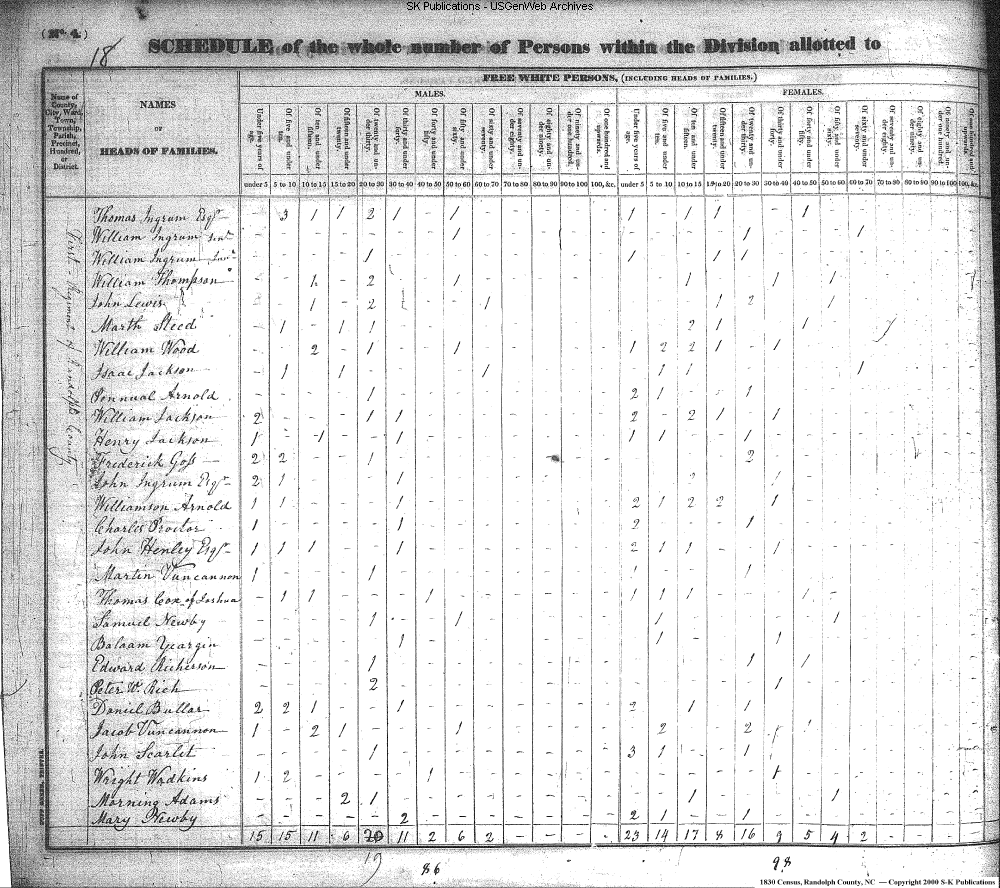 SK Publications - USGenWeb Archives
(No. 4.)
18
SCHEDULE of the whole number of Persons within the Division allotted to
Name of County, City, Ward, Town, Township, Parish, Precinct, Hundred, or District.
NAMES
OF
HEADS OF FAMILIES.
FREE WHITE PERSONS, (INCLUDING HEADS OF FAMILIES.)
MALES.
FEMALES.
under 5 5 to 10 10 to 15 15 to 20 20 to 30 30 to 40 40 to 50 50 to 60 60 to 70 70 to 80 80 to 90 90 to 100 100, &c. under 5 5 to 10 10 to 15 15 to 20 20 to 30 30 to 40 40 to 50 50 to 60 60 to 70 70 to 80 80 to 90 90 to 100 100, &c.
Thomas Ingrum Esqr - 3 1 1 2 1 - 1 - - - - - 1 - 1 1 - - 1 - - - - - -
William Ingrum Senr - - - - - - - 1 - - - - - - - - - 1 - - - 1 - - - -
William Ingrum Junr - - - - 1 - - - - - - - - 1 - - 1 1 - - - - - - - -
William Thompson - - 1 - 2 - - 1 - - - - - - - 1 - - 1 - 1 - - - - -
John Lewis - - 1 - 2 - - - 1 - - - - - - - 1 2 - - 1 - - - - -
Marth Steed - 1 - 1 1 - - - - - - - - - - 2 1 - - 1 - - - - - -
William Wood - - 2 - 1 - - 1 - - - - - 1 2 2 1 - 1 - - - - - - -
Isaac Jackson - 1 - 1 - - - - 1 - - - - - 1 1 - - - - - 1 - - - -
Pennual Arnold - - - - 1 - - - - - - - - 2 1 - - 1 - - - - - - - -
William Jackson 2 - - - 1 1 - - - - - - - 2 - 2 1 - 1 - - - - - - -
Henry Jackson 1 - 1 - - 1 - - - - - - - 1 1 - - 1 - - - - - - - -
Frederick Goss 2 2 - - 1 - - - - - - - - - - - - 2 - - - - - - - -
John Ingrum Esqr 2 1 - - - 1 - - - - - - - - - 2 - - 1 - - - - - - -
Williamson Arnold 1 1 - - - 1 - - - - - - - 2 1 2 2 - 1 - - - - - - -
Charles Proctor 1 - - - - 1 - - - - - - - 2 - - - 1 - - - - - - - -
John Henley Esqr 1 1 1 - - 1 - - - - - - - 2 1 1 - - 1 - - - - - - -
Martin Vuncannon 1 - - - 1 - - - - - - - - 1 - - - 1 - - - - - - - -
Thomas Cox of Joshua - 1 1 - - - 1 - - - - - - 1 1 1 - - - 1 - - - - - -
Samuel Newby - - - - 1 - - 1 - - - - - - 1 - - - - - 1 - - - - -
Balaam Yeargin - - - - - 1 - - - - - - - - 1 - - - 1 - - - - - - -
Edward Richerson - - - - 1 - - - - - - - - - - - - 1 - 1 - - - - - -
Peter W. Rich - - - - 2 - - - - - - - - - - - - - 1 - - - - - - -
Daniel Bullar 2 2 1 - - 1 - - - - - - - 2 - 1 - 1 - - - - - - - -
Jacob Vuncannon 1 - 2 1 - - - 1 - - - - - - 2 - - 2 - 1 - - - - - -
John Scarlet - - - - 1 - - - - - - - - 3 1 - - 1 - - - - - - - -
Wright Wadkins 1 2 - - - - 1 - - - - - - - - - - - 1 - - - - - - -
Morning Adams - - - 2 1 - - - - - - - - - - 1 - - - - 1 - - - - -
Mary Newby - - - - - 2 - - - - - - - 2 1 - - 1 - - - - - - - -
15 15 11 6 20 11 2 6 2 - - - - 23 14 17 8 16 9 5 4 2 - - - -
19
86
98
1830 Census, Randolph County, NC — Copyright 2000 S-K Publications